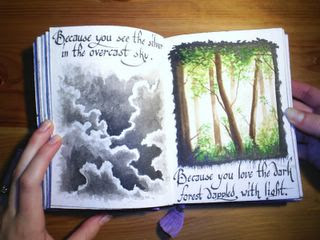 Because you see the silver
in the overcast sky.
Because you love the dark
forest dappled, with light.